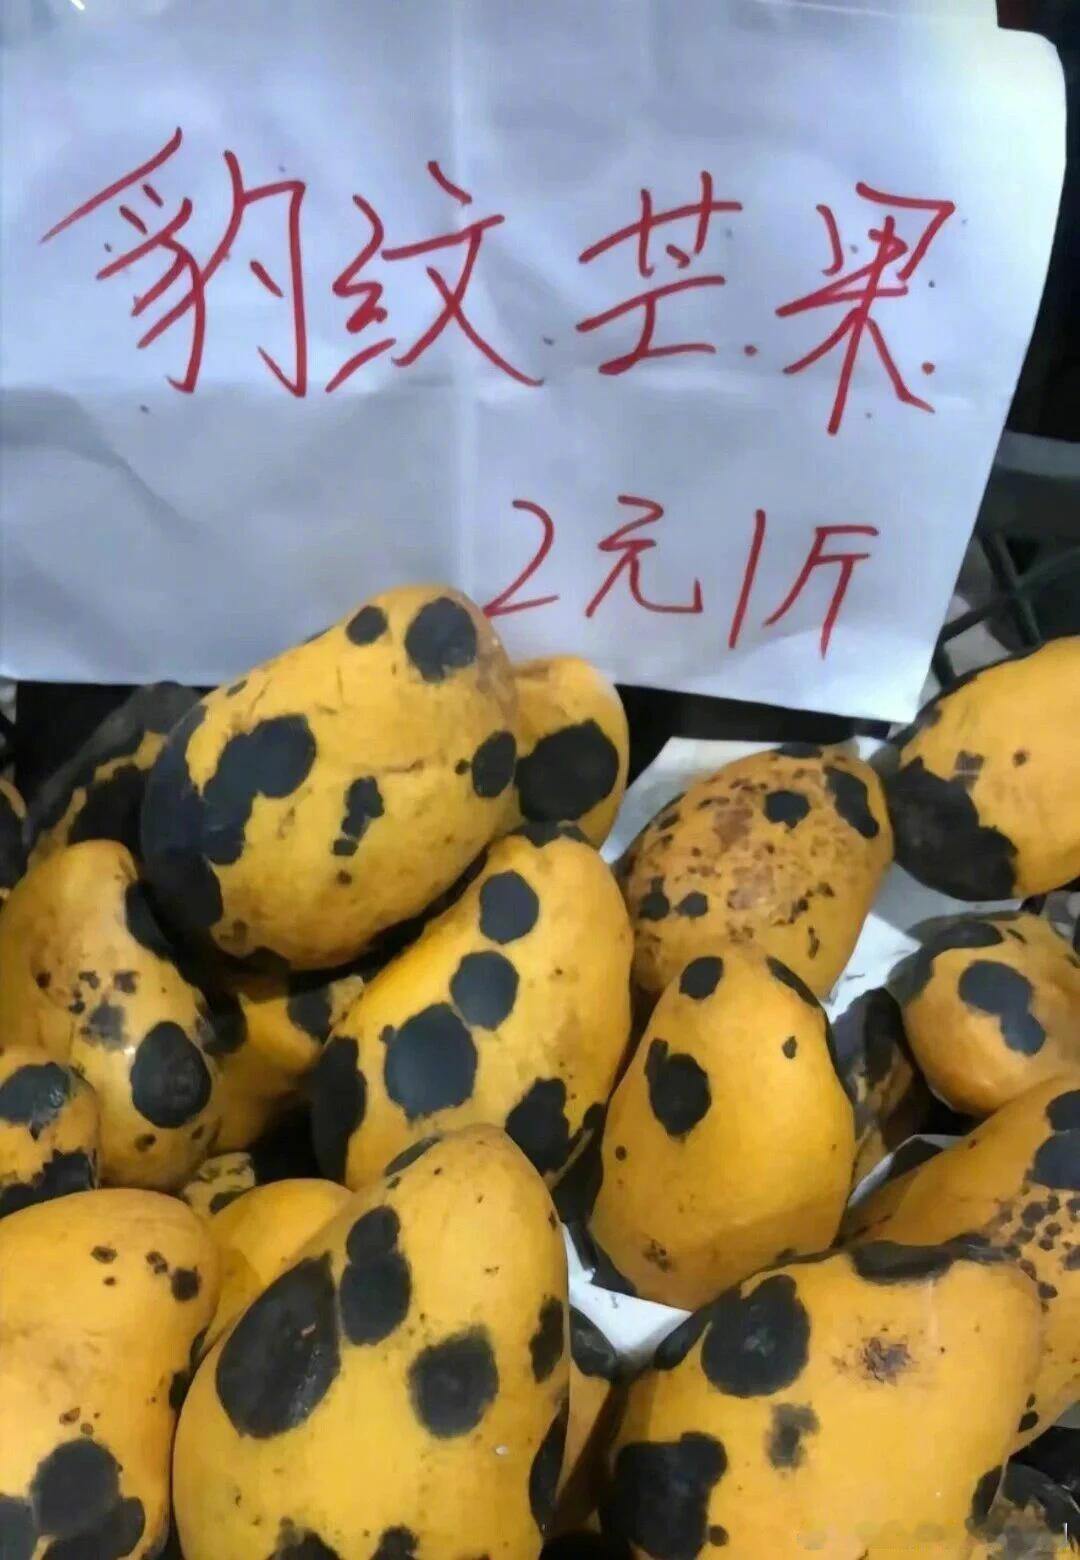 豹纹芒果
2元1斤